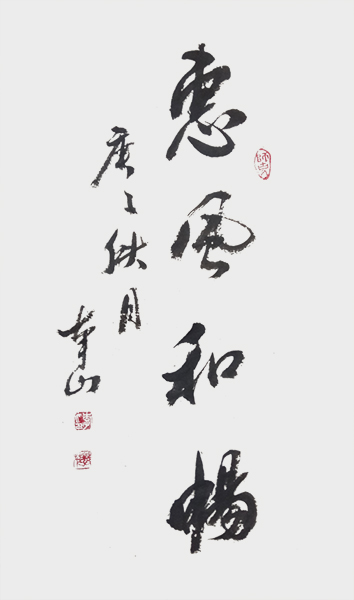 惠風和暢
庚子秋月
山